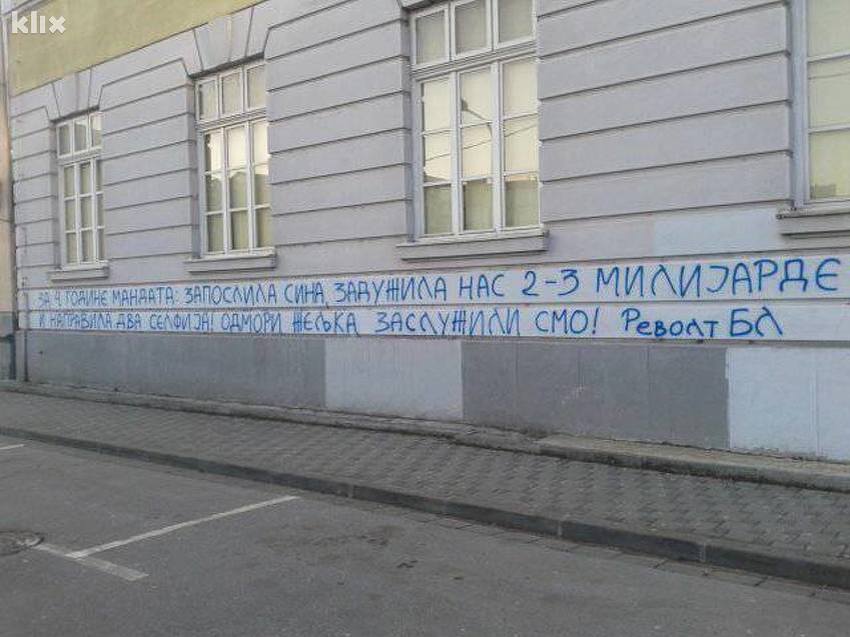 klix
ЗА 4 ГОДИНЕ МАНДАТА: ЗАПОСЛИЛА СИНА, ЗАДУЖИЛА НАС 2-3 МИЛИЈАРДЕ
И НАПРАВИЛА ДВА СЕЛФИЈА! ОДМОРИ ЖЕЉКА, ЗАСЛУЖИЛИ СМО! Револт БЛ